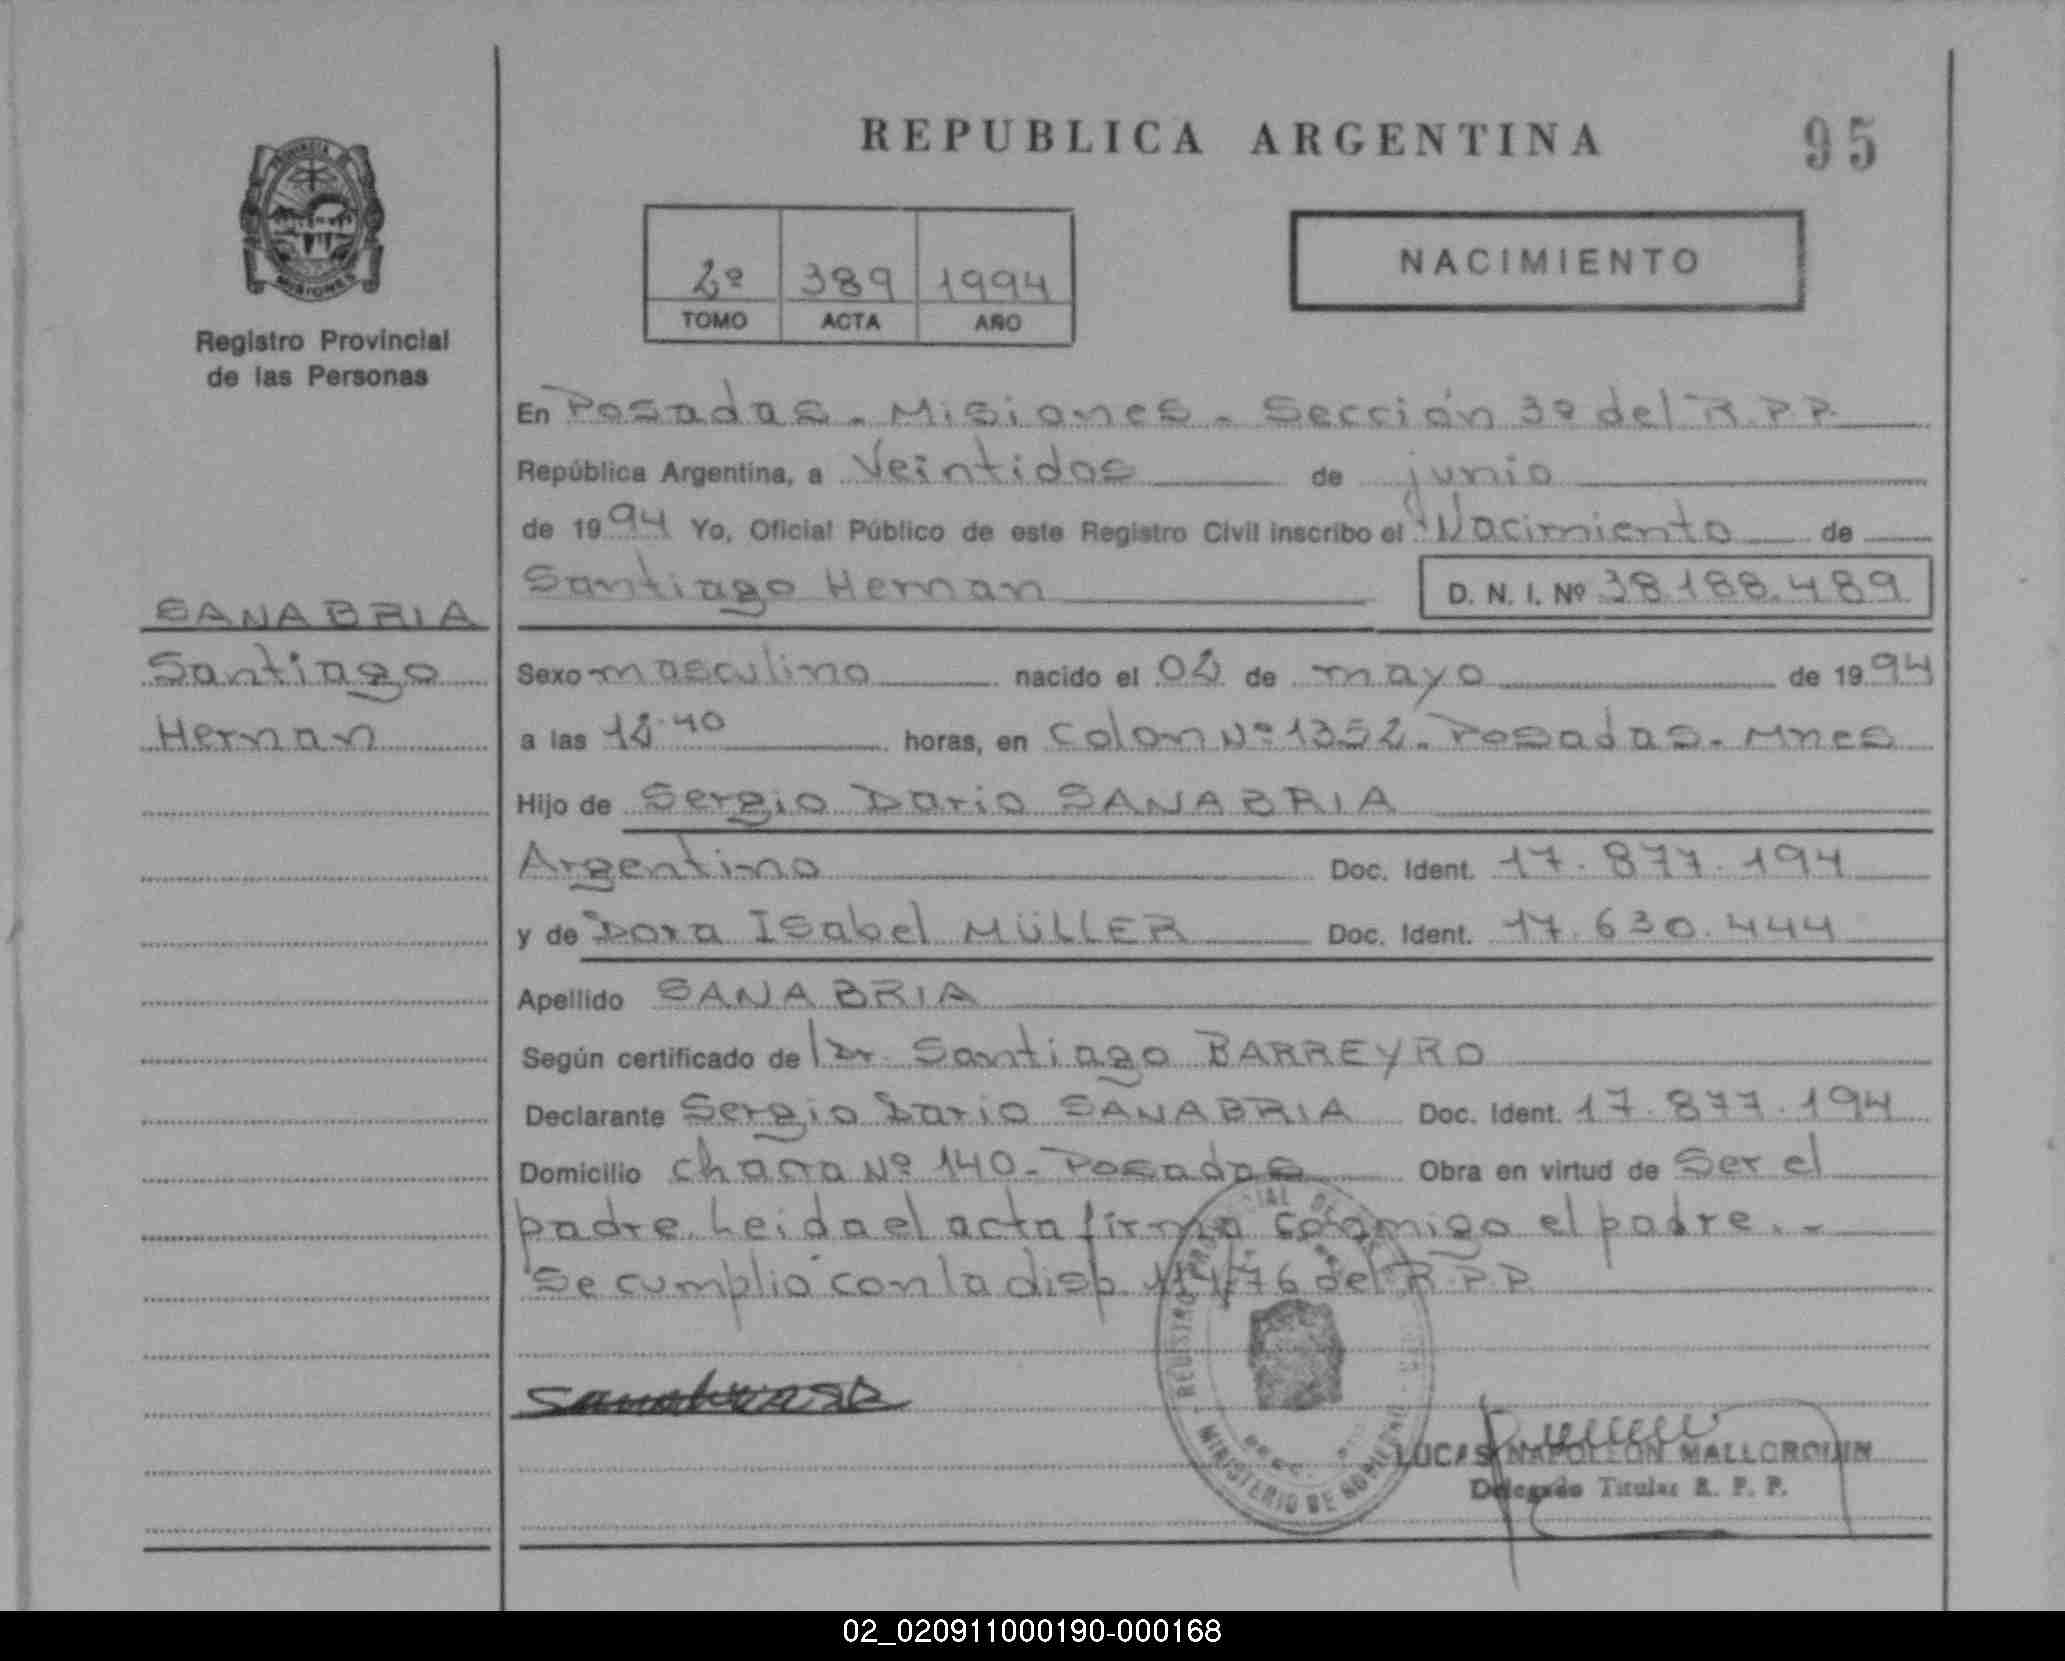 REPUBLICA ARGENTINA
95
PROVINCIA DE
MISIONES
Registro Provincial
de las Personas
2º 389 1994
TOMO ACTA AÑO
NACIMIENTO
En Posadas - Misiones - Sección 3º del R.P.P.
República Argentina, a Veintidos de junio
de 1994 Yo, Oficial Público de este Registro Civil inscribo el Nacimiento de
Santiago Hernan D. N. I. Nº 38.188.489
SANABRIA
Santiago
Hernan
Sexo masculino nacido el 02 de mayo de 1994
a las 12.40 horas, en Colon Nº 1352. Posadas - Mnes
Hijo de Sergio Dario SANABRIA
Argentino Doc. Ident. 17.877.194
y de Dora Isabel MÜLLER Doc. Ident. 17.630.444
Apellido SANABRIA
Según certificado de Dr. Santiago BARREYRO
Declarante Sergio Dario SANABRIA Doc. Ident. 17.877.194
Domicilio chacra Nº 140 - Posadas Obra en virtud de Ser el
padre. Leida el acta firma conmigo el padre. -
Se cumplió con la disp. 114/76 del R.P.P.
LUCAS NAPOLEON MALLORQUIN
Delegado Titular R. P. P.
MINISTERIO DE GOBIERNO
02_020911000190-000168